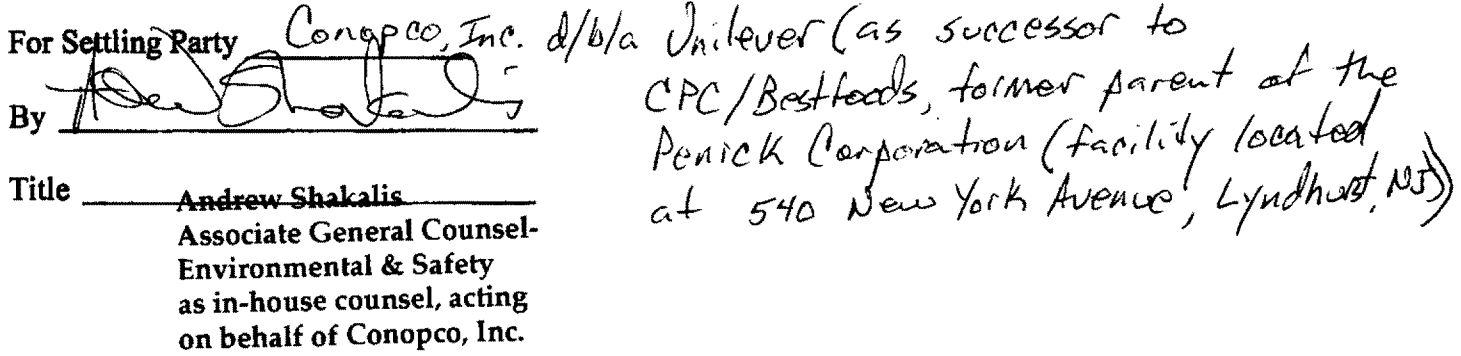 For Settling Party Conopco, Inc. d/b/a Unilever (as successor to
CPC/Bestfoods, former parent of the
Penick Corporation (facility located
at 540 New York Avenue, Lyndhurst, NJ))
By Andrew Shakalis
Title Andrew Shakalis
Associate General Counsel-
Environmental & Safety
as in-house counsel, acting
on behalf of Conopco, Inc.